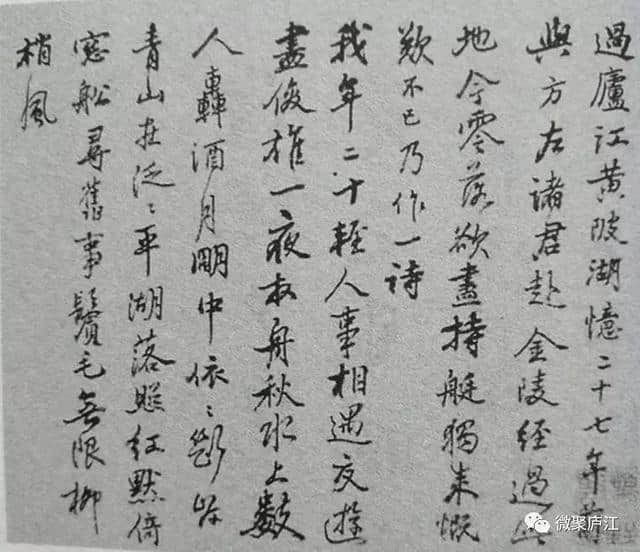 過廬江黃陂湖憶二十七年前
與方左諸君赴金陵經過此
地今零落欲盡持艇獨來慨
歎不已乃作一詩
我年二十輕人事相遇交遊
盡俊雄一夜放舟秋水上數
人轟酒月明中依〻斷岸
青山在泛〻平湖落照紅默倚
窓船尋舊事鬢毛無限柳
梢風
微聚庐江